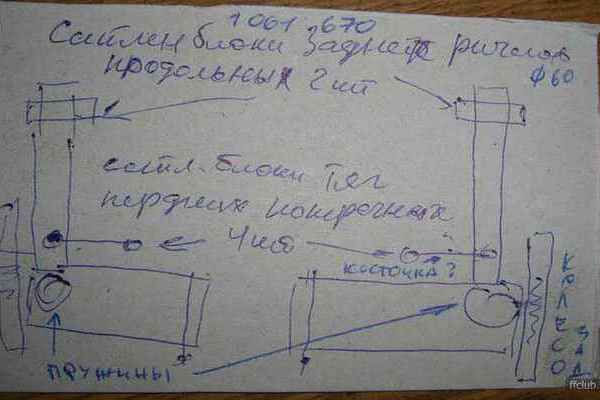 1061 670
Сатлен блоки задних рычагов
продольных 2 шт
Ф60
сатл. блоки тяг
передних поперечных
4 шт
косточка?
пружины
колесо
зад
ffclub